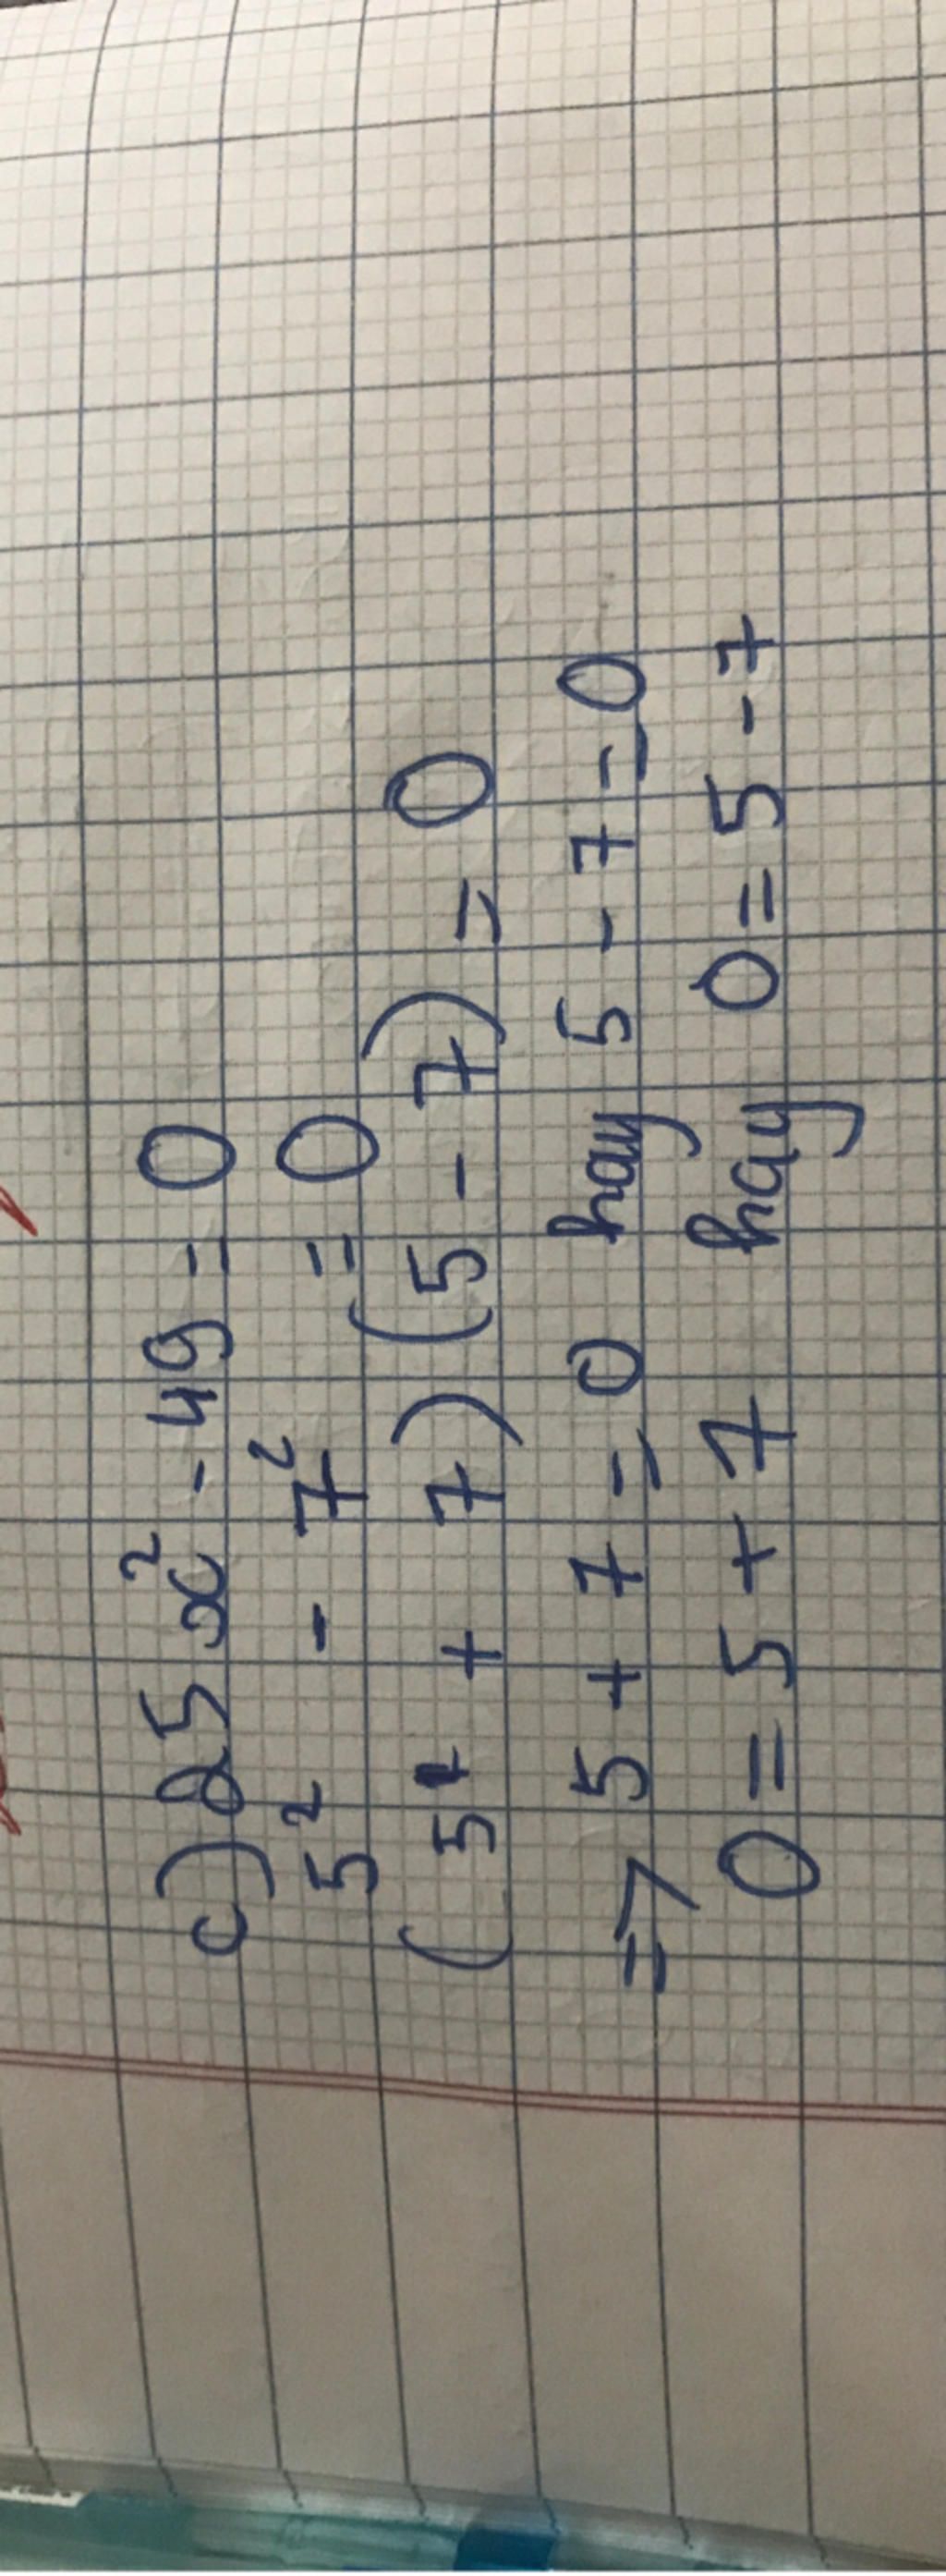 c) 25x² - 49 = 0
5² - 7² = 0
(5 + 7) (5 - 7) = 0
=> 5 + 7 = 0 hay 5 - 7 = 0
0 = 5 + 7 hay 0 = 5 - 7